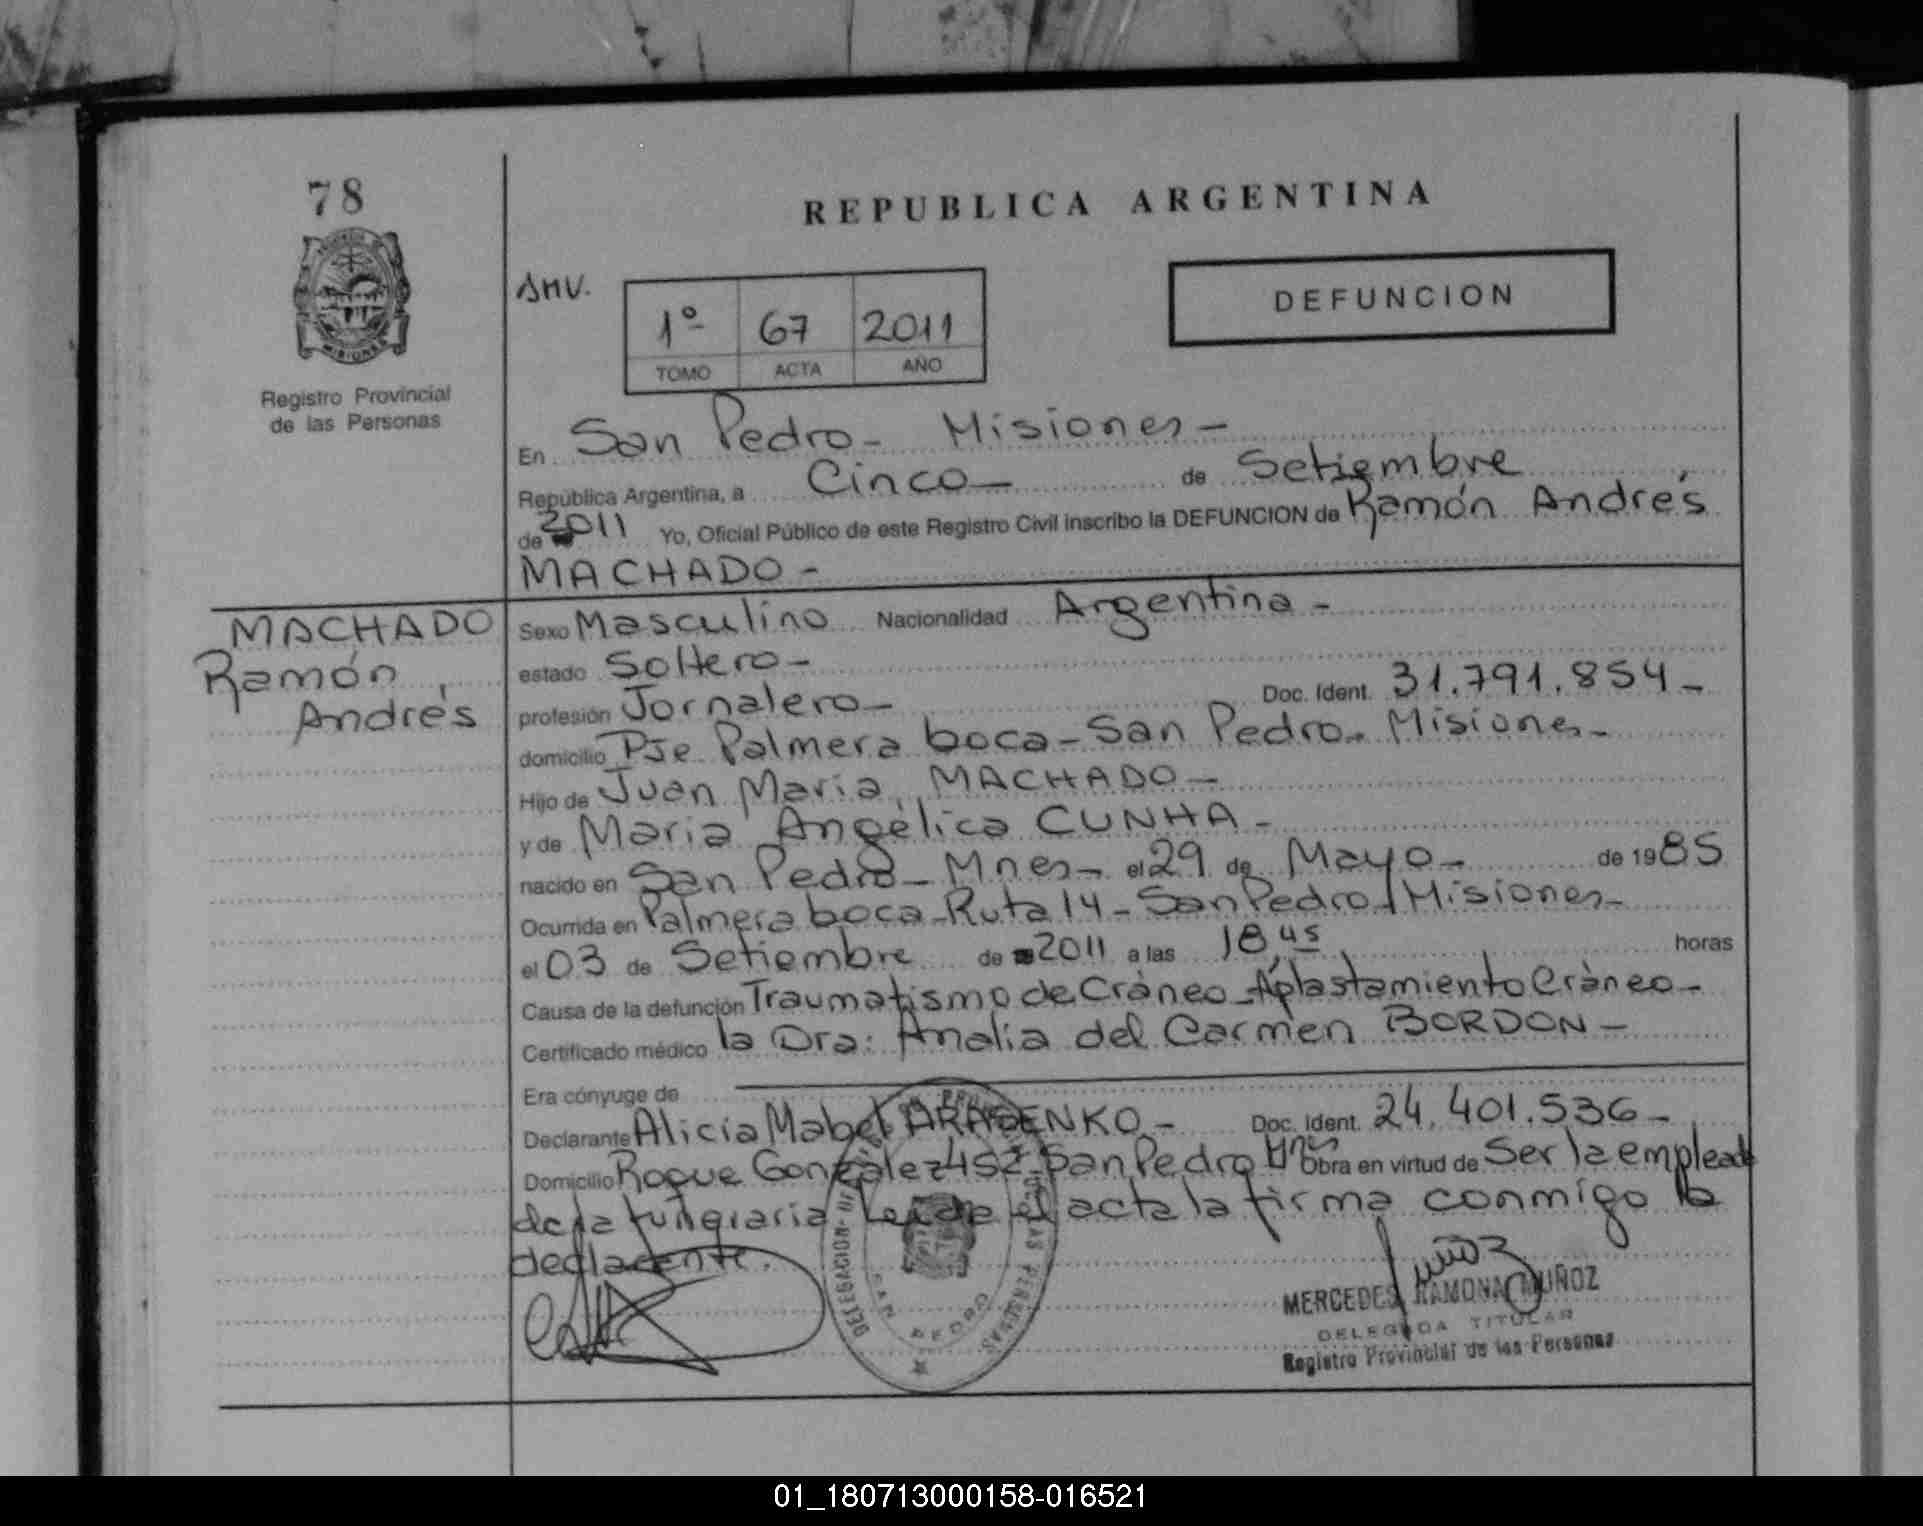 78
REPUBLICA ARGENTINA
MISIONES
Registro Provincial
de las Personas
SMV.
1º 67 2011
TOMO ACTA AÑO
DEFUNCION
En San Pedro - Misiones -
República Argentina, a Cinco - de Setiembre
de 2011 Yo, Oficial Público de este Registro Civil inscribo la DEFUNCION de Ramón Andrés
MACHADO -
MACHADO
Ramón
Andrés
Sexo Masculino Nacionalidad Argentina -
estado Soltero -
profesión Jornalero - Doc. Ident. 31.791.854 -
domicilio Pje Palmera boca - San Pedro - Misiones -
Hijo de Juan Maria MACHADO -
y de Maria Angélica CUNHA -
nacido en San Pedro - Mnes - el 29 de Mayo - de 1985
Ocurrida en Palmera boca - Ruta 14 - San Pedro - Misiones -
el 03 de Setiembre de 2011 a las 18,45 horas
Causa de la defunción Traumatismo de Cráneo - Aplastamiento Cráneo -
Certificado médico la Dra: Analia del Carmen BORDON -
Era cónyuge de
Declarante Alicia Mabel Doc. Ident. 24.401.536 -
Domicilio Roque Gonzalez 452 - San Pedro Mnes Obra en virtud de Ser la empleada
de la funeraria Leida el acta la firma conmigo la
declarante.
DELEGACION
LAS PERSONAS
SAN PEDRO
MERCEDES RAMONA MUÑOZ
DELEGADA TITULAR
Registro Provincial de las Personas
01_180713000158-016521